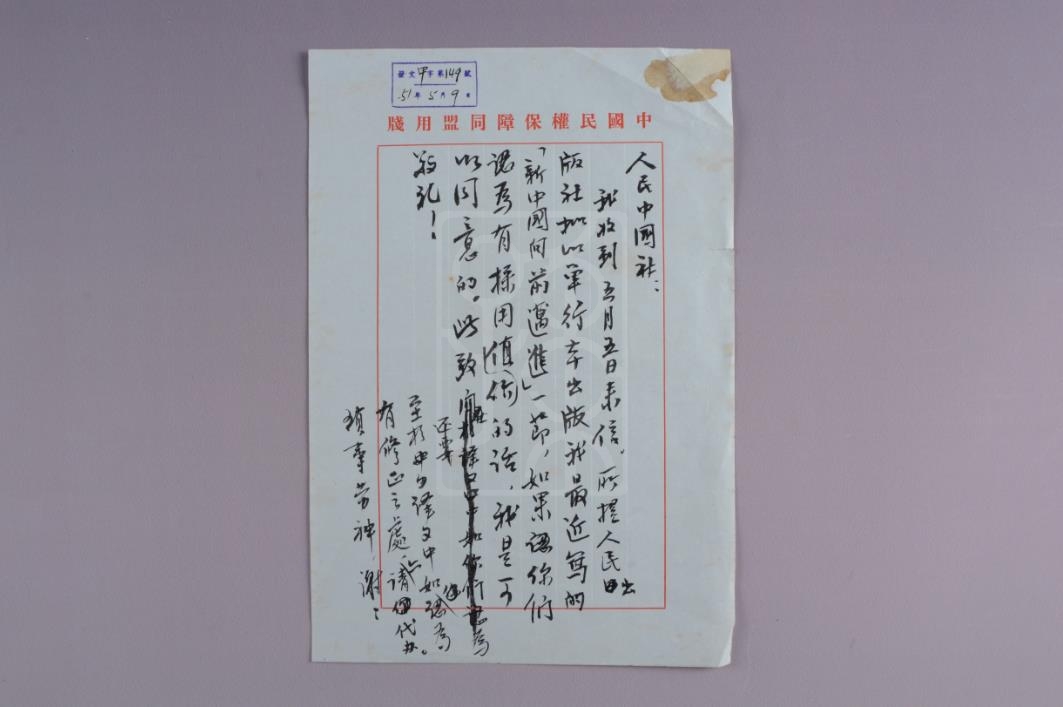 發文甲字第149號
51年5月9日
中國民權保障同盟用牋
人民中國社：
我收到五月五日來信，所提人民出
版社擬以單行本出版我最近寫的
「新中國向前邁進」一節，如果你們
認為有採用價值的話，我是可
以同意的。此致
敬礼！
至於中文譯文中如認為
還要
有修正之處，請代办。
瑣事勞神，謝：